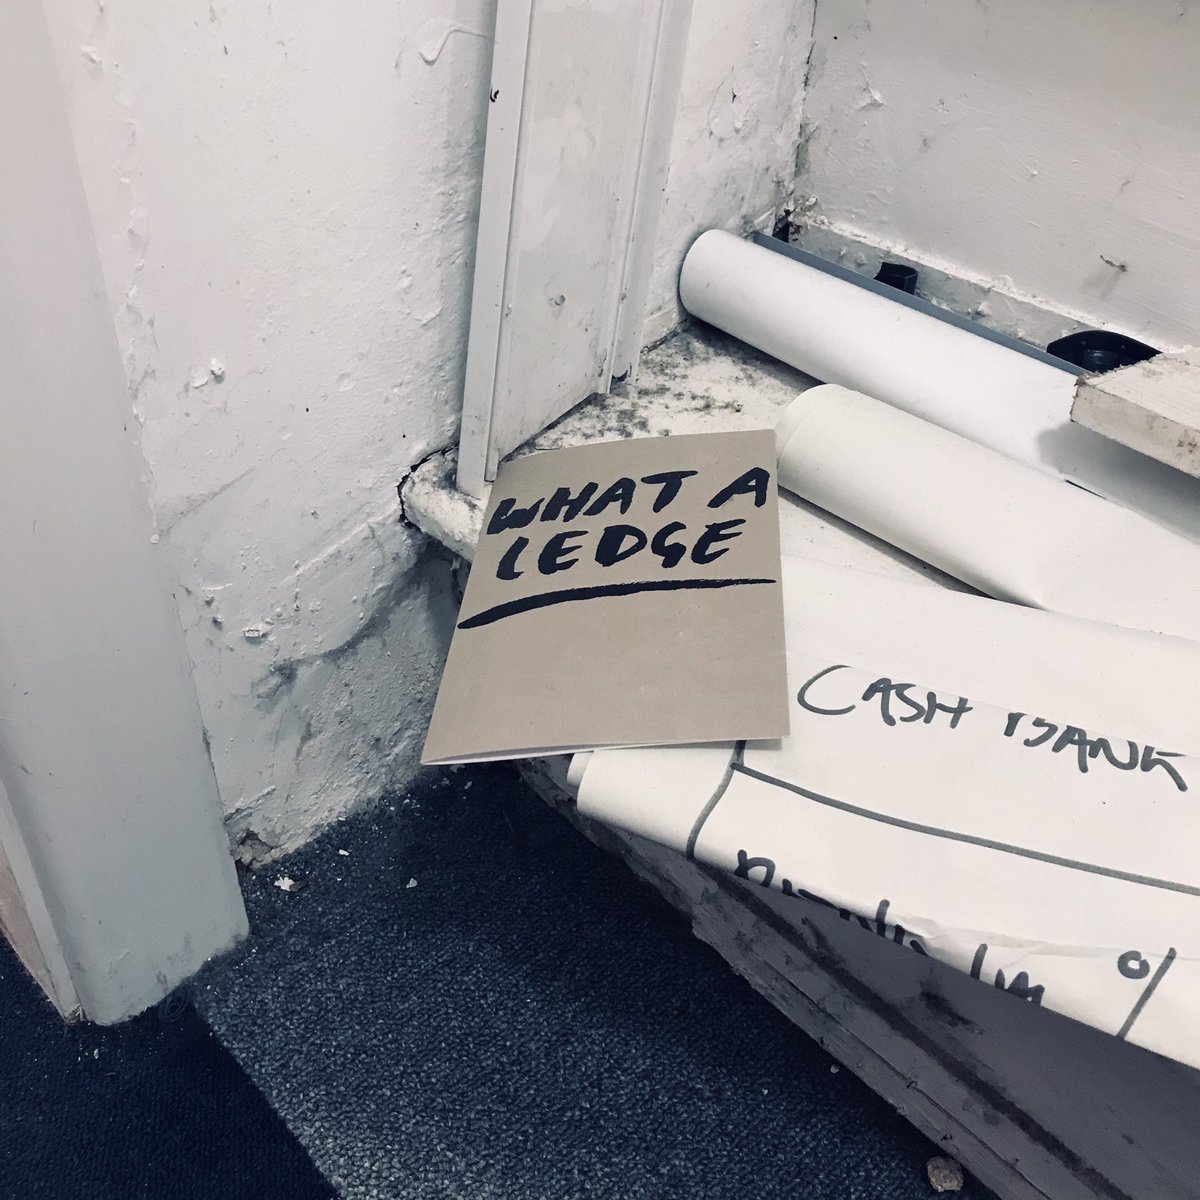 WHAT A
LEDGE
CASH BANK